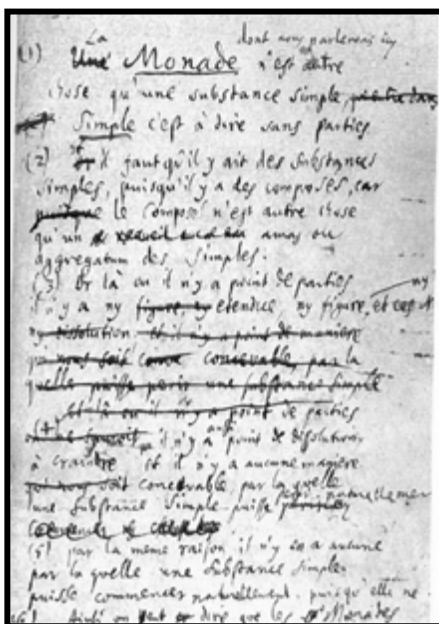 La dont nous parlerons icy
(1) Une Monade n'est autre
chose qu'une substance simple
Simple c'est à dire sans parties
(2) Il faut qu'il y ait des substances
simples, puisqu'il y a des composés, car
puisque le composé n'est autre chose
qu'un recueil amas ou
aggregatum des simples.
(3) Or là ou il n'y a point de parties
ny
il n'y a ny figure, ny etendue, ny figure, et ces
ny dissolution et il n'y a point de maniere
nous soit concevable, par la
quelle puisse perir une substance simple
et là ou il n'y a point de parties
(4) il n'y a aussi point de dissolution
à craindre et il n'y a aucune maniere
qui nous soit concevable par la quelle
une substance simple puisse perir naturellement
(5) par la meme raison il n'y en a aucune
par la quelle une substance simple
puisse commencer naturellement, puisqu'elle ne
(6) Ainsi on peut dire que les Monades